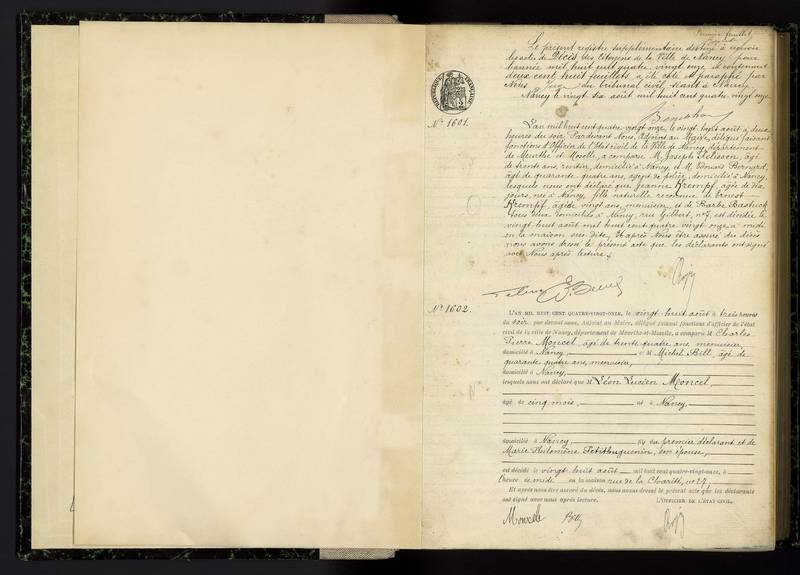 Premier feuillet
Le présent registre supplémentaire destiné à recevoir
les actes de Décès des Citoyens de la Ville de Nancy pour
l'année mil huit cent quatre vingt onze et contenant
deux cent huit feuillets a été coté et paraphé par
Nous Juge du tribunal civil, séant à Nancy
Nancy le vingt six août mil huit cent quatre vingt onze
N° 1601.
L'an mil huit cent quatre vingt onze, le vingt huit août à deux
heures du soir. Pardevant Nous, Adjoint au Maire, délégué faisant
fonctions d'Officier de l'état civil de la Ville de Nancy, département
de Meurthe et Moselle, a comparu M. Joseph Pelisson, âgé
de trente ans, rentier, domicilié à Nancy, et M. Edouard Bernard,
âgé de quarante quatre ans, agent de police, domicilié à Nancy,
lesquels nous ont déclaré que Jeanne Krempf, agée de dix
jours, née à Nancy, fille naturelle reconnue de Ernest
Krempf, âgé de vingt ans, menuisier, et de Barbe Bastuck
tous deux domiciliés à Nancy, rue Gilbert, n° 7, est décédée le
vingt huit août mil huit cent quatre vingt onze à midi
en la maison sus dite. Et après Nous être assuré du décès
nous avons dressé le présent acte que les déclarants ont signé
avec Nous après lecture.
N° 1602.
L'AN MIL HUIT CENT QUATRE-VINGT-ONZE, le vingt huit août à trois heures
du soir par devant nous, Adjoint au Maire, délégué faisant fonctions d'officier de l'état
civil de la ville de Nancy, département de Meurthe-et-Moselle, a comparu M Charles
Pierre Moncel, âgé de trente quatre ans, menuisier,
domicilié à Nancy, et M Michel Bill, âgé de
quarante quatre ans, menuisier,
domicilié à Nancy,
lesquels nous ont déclaré que M Léon Lucien Moncel,
âgé de cinq mois, né à Nancy,
domicilié à Nancy, fils du premier déclarant et de
Marie Philomène Petithuguenin, son épouse,
est décédé le vingt huit août mil huit cent quatre-vingt-onze, à
l'heure de midi en la maison rue de la Charité, n° 27,
Et après nous être assuré du décès, nous avons dressé le présent acte que les déclarants
ont signé avec nous après lecture. L'OFFICIER DE L'ÉTAT CIVIL,